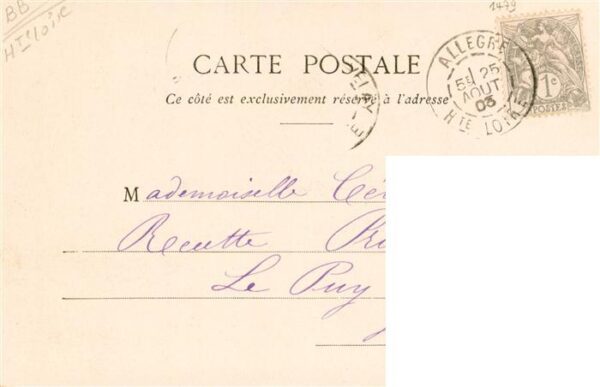 BB
Hte Loire
1479
CARTE POSTALE
Ce côté est exclusivement réservé à l'adresse
ALLEGRE
5E 25
AOUT
03
HTE LOIRE
1c
POSTES
VELAY
Mademoiselle
Recette
Le Puy